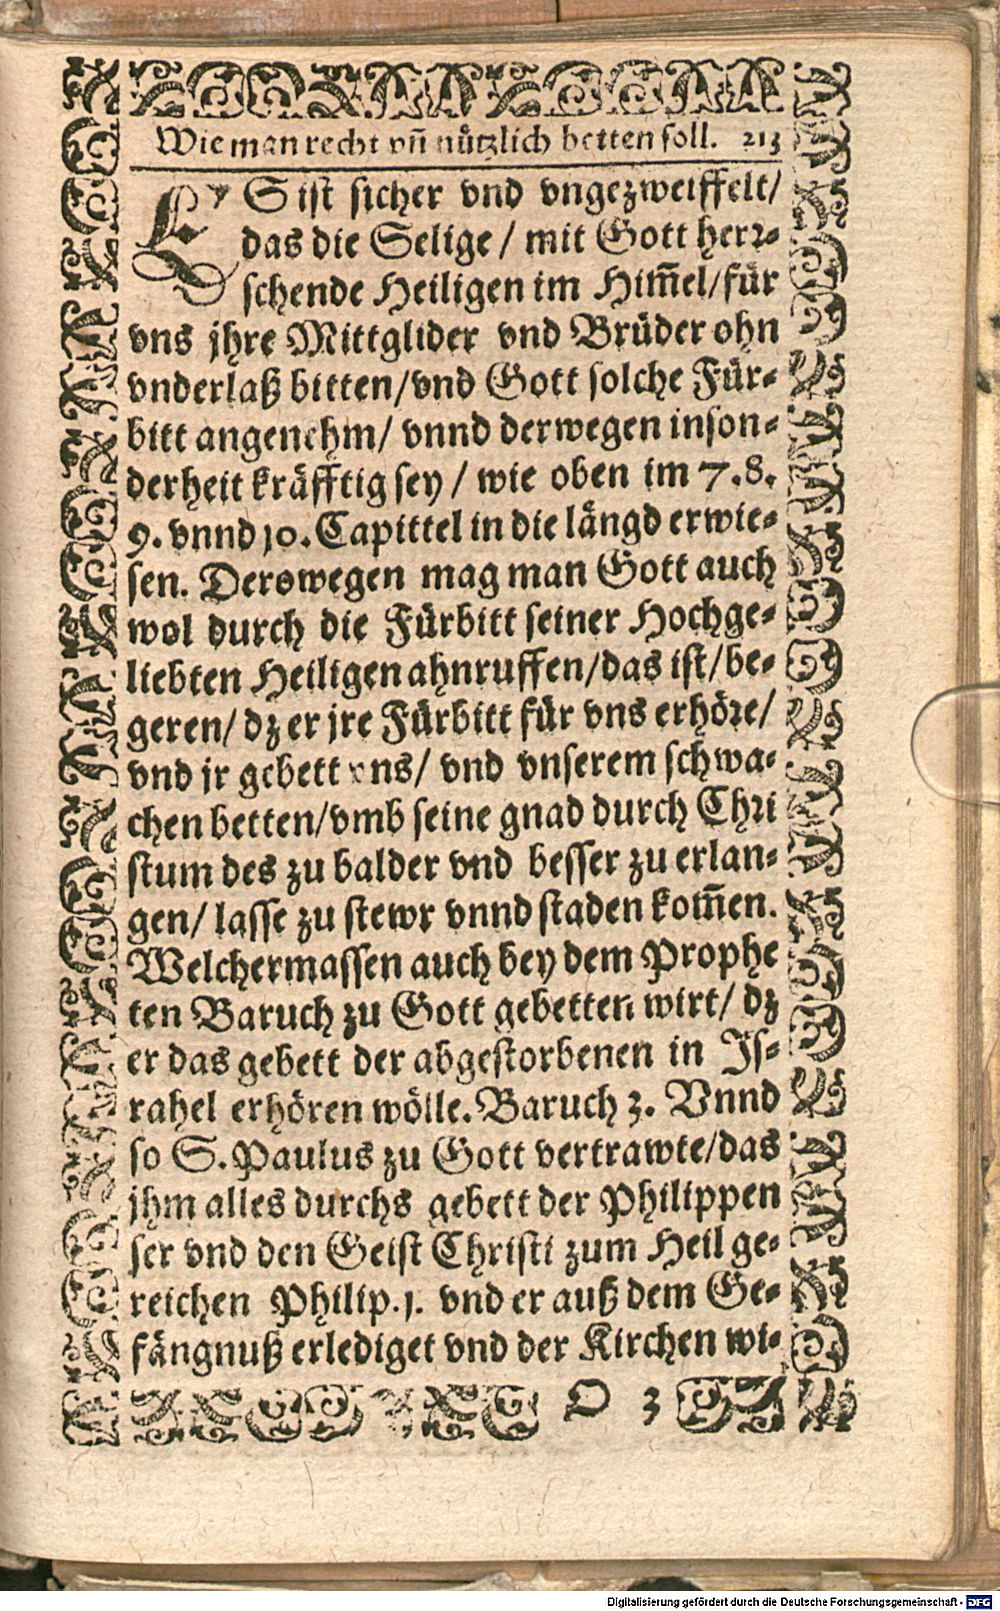 Wie man recht vñ nützlich betten soll. 213
ES ist sicher vnd vngezweiffelt/
das die Selige / mit Gott herr-
schende Heiligen im Him̃el/für
vns jhre Mittglider vnd Brüder ohn
vnderlaß bitten/vnd Gott solche Für-
bitt angenehm/ vnnd derwegen inson-
derheit kräfftig sey / wie oben im 7.8.
9. vnnd 10. Capittel in die längd erwie-
sen. Derowegen mag man Gott auch
wol durch die Fürbitt seiner Hochge-
liebten Heiligen ahnruffen/das ist/be-
geren/ dz er jre Fürbitt für vns erhöre/
vnd jr gebett vns/ vnd vnserem schwa-
chen betten/vmb seine gnad durch Chri
stum des zu balder vnd besser zu erlan-
gen/ lasse zu stewr vnnd staden kom̃en.
Welchermassen auch bey dem Prophe
ten Baruch zu Gott gebetten wirt/ dz
er das gebett der abgestorbenen in Js-
rahel erhören wölle. Baruch 3. Vnnd
so S. Paulus zu Gott vertrawte/das
jhm alles durchs gebett der Philippen
ser vnd den Geist Christi zum Heil ge-
reichen Philip. 1. vnd er auß dem Ge-
fängnuß erlediget vnd der Kirchen wi-
O 3
Digitalisierung gefördert durch die Deutsche Forschungsgemeinschaft - DFG